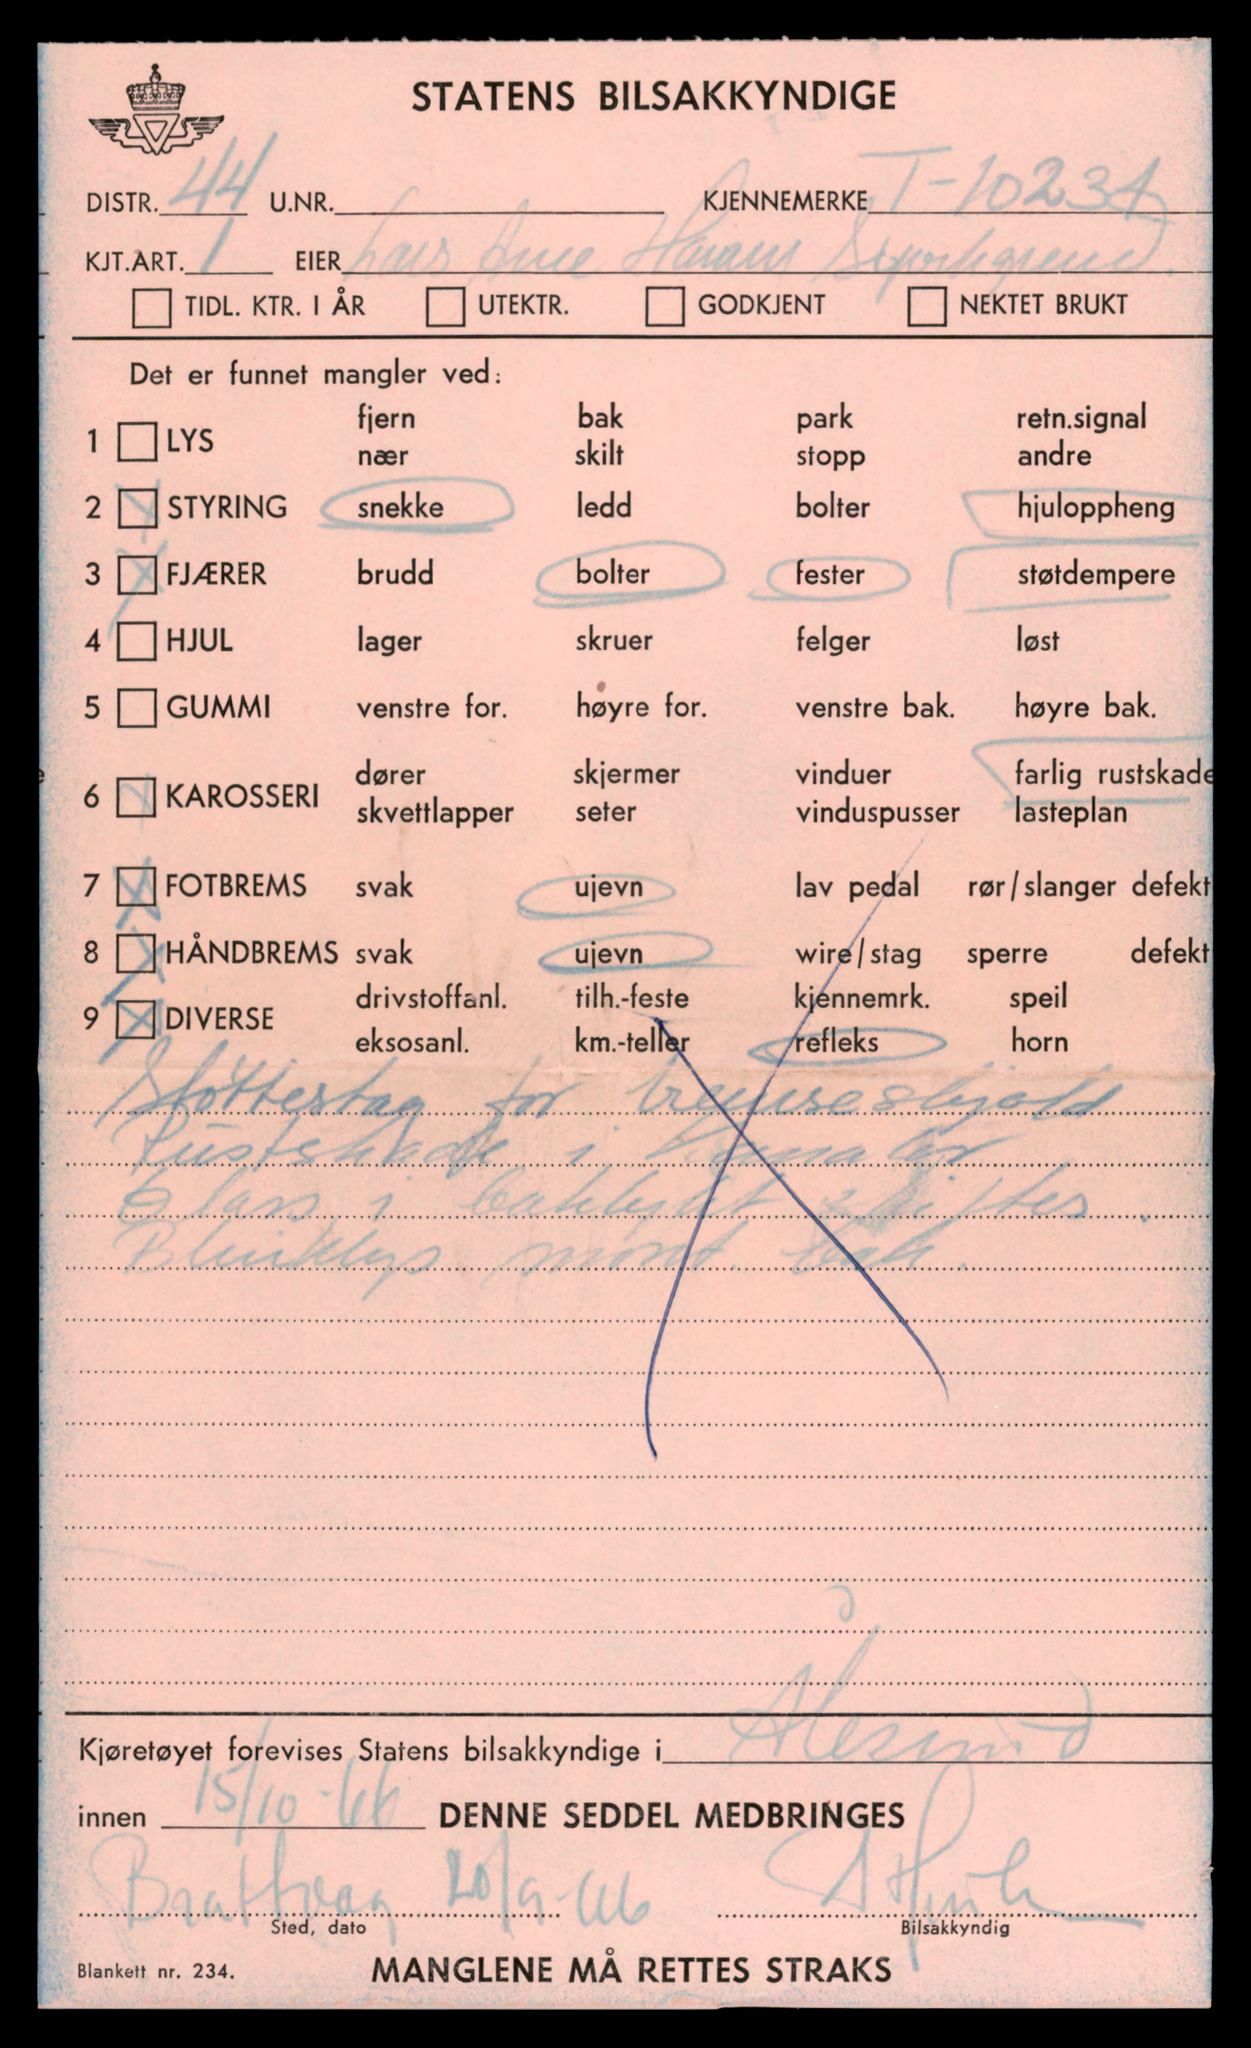 STATENS BILSAKKYNDIGE
DISTR. 44 U.NR. KJENNEMERKE T-10234
KJT.ART. 1 EIER Lars Arne
TIDL. KTR. I ÅR UTEKTR. GODKJENT NEKTET BRUKT
Det er funnet mangler ved:
1 LYS fjern bak park retn.signal
nær skilt stopp andre
2 STYRING snekke ledd bolter hjuloppheng
3 FJÆRER brudd bolter fester støtdempere
4 HJUL lager skruer felger løst
5 GUMMI venstre for. høyre for. venstre bak. høyre bak.
6 KAROSSERI dører skjermer vinduer farlig rustskade
skvettlapper seter vinduspusser lasteplan
7 FOTBREMS svak ujevn lav pedal rør/slanger defekt
8 HÅNDBREMS svak ujevn wire/stag sperre defekt
9 DIVERSE drivstoffanl. tilh.-feste kjennemrk. speil
eksosanl. km.-teller refleks horn
Støttestag for bremseskjold
Rustskade i kanaler
Glass i baklykt skiftes.
Blinklys mont. bak.
Kjøretøyet forevises Statens bilsakkyndige i Ålesund
innen 15/10-66 DENNE SEDDEL MEDBRINGES
Brattvåg 20/9-66
Sted, dato Bilsakkyndig
Blankett nr. 234. MANGLENE MÅ RETTES STRAKS